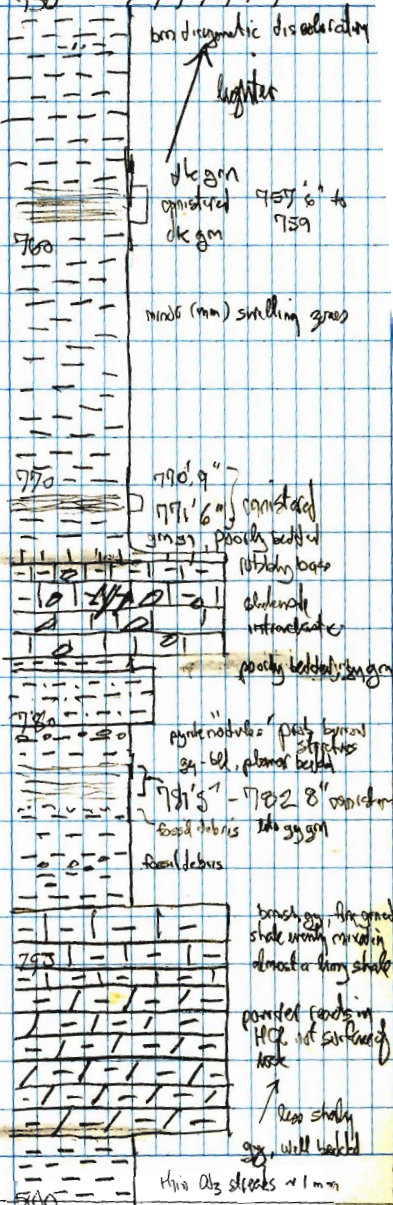 750
brn diagenetic discoloration
lighter
dk grn
canistered
dk grn
757'6" to
759
760
minor (mm) swelling zones
770
770'9"
771'6"
canistered
grn gy, poorly bedded
rubbly base
intraclastic
poorly bedded, gy grn
780
pyrite "nodules" poss burrow
structures
gy-bl, planar bedded
781'5" - 782 8" canister
fossil debris
gy grn
fossil debris
brnsh gy, fine grained
shale evenly mixed in
almost a limy shale
793
powder reacts in
HCl not surface of
rock
less shaly
gy, well bedded
thin streaks ~1mm
800